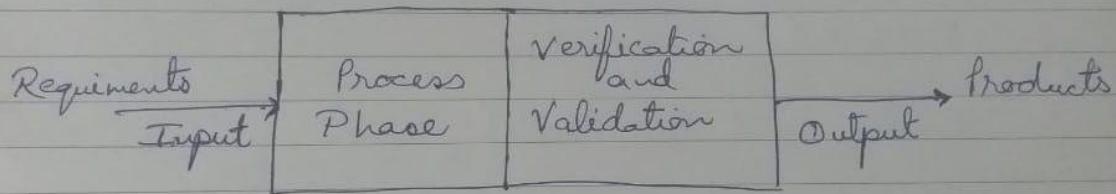 Requiments
Input
Process
Phase
Verification
and
Validation
Output
Products